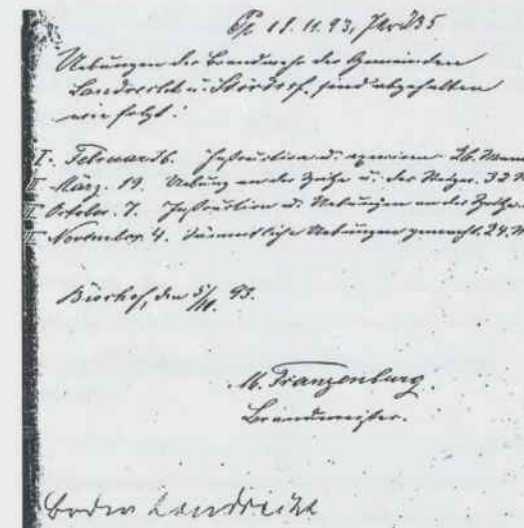 18.11.93,
Uebungen der Brandwehr der Gemeinden
Landrecht u. Stördorf, sind abgehalten
wie folgt:
I. Februar 26. Instruction u. exercieren 26 Mann
II März. 19. Uebung an der Spritze u. der Netzer. 32 M
Octobr. 7. Instruction u. Uebungen an der Spritze
November 4. Sämmtliche Uebungen gemacht. 24. M
den 5/11. 93.
M. Franzenburg
Brandmeister.
Landrecht